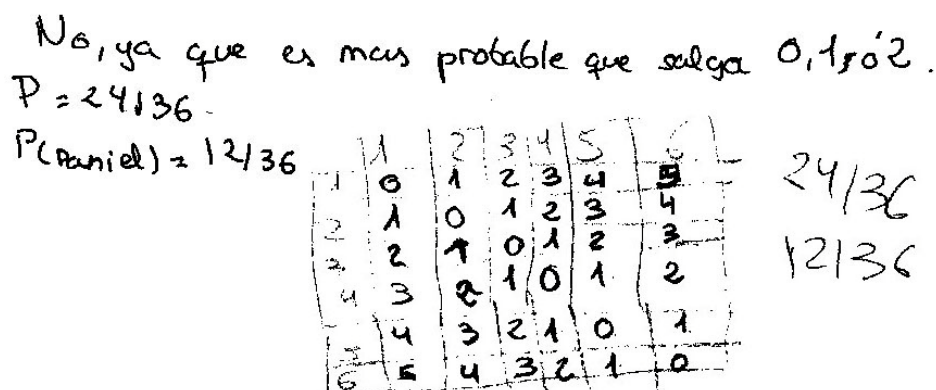 No, ya que es mas probable que salga 0, 1, ó 2.
P = 24/36
P(Daniel) = 12/36
1 2 3 4 5 6
1 0 1 2 3 4 5
2 1 0 1 2 3 4
3 2 1 0 1 2 3
4 3 2 1 0 1 2
5 4 3 2 1 0 1
6 5 4 3 2 1 0
24/36
12/36